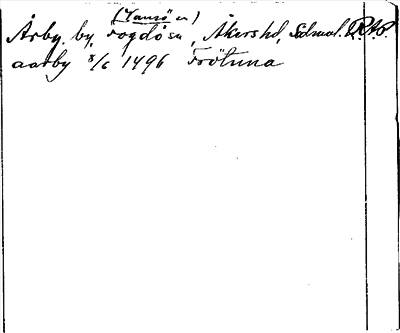 (Vansö sn)
Årby, by, Fogdösn, Åkershd, Södmnl. RAP.
aarby 8/6 1496 Frötuna